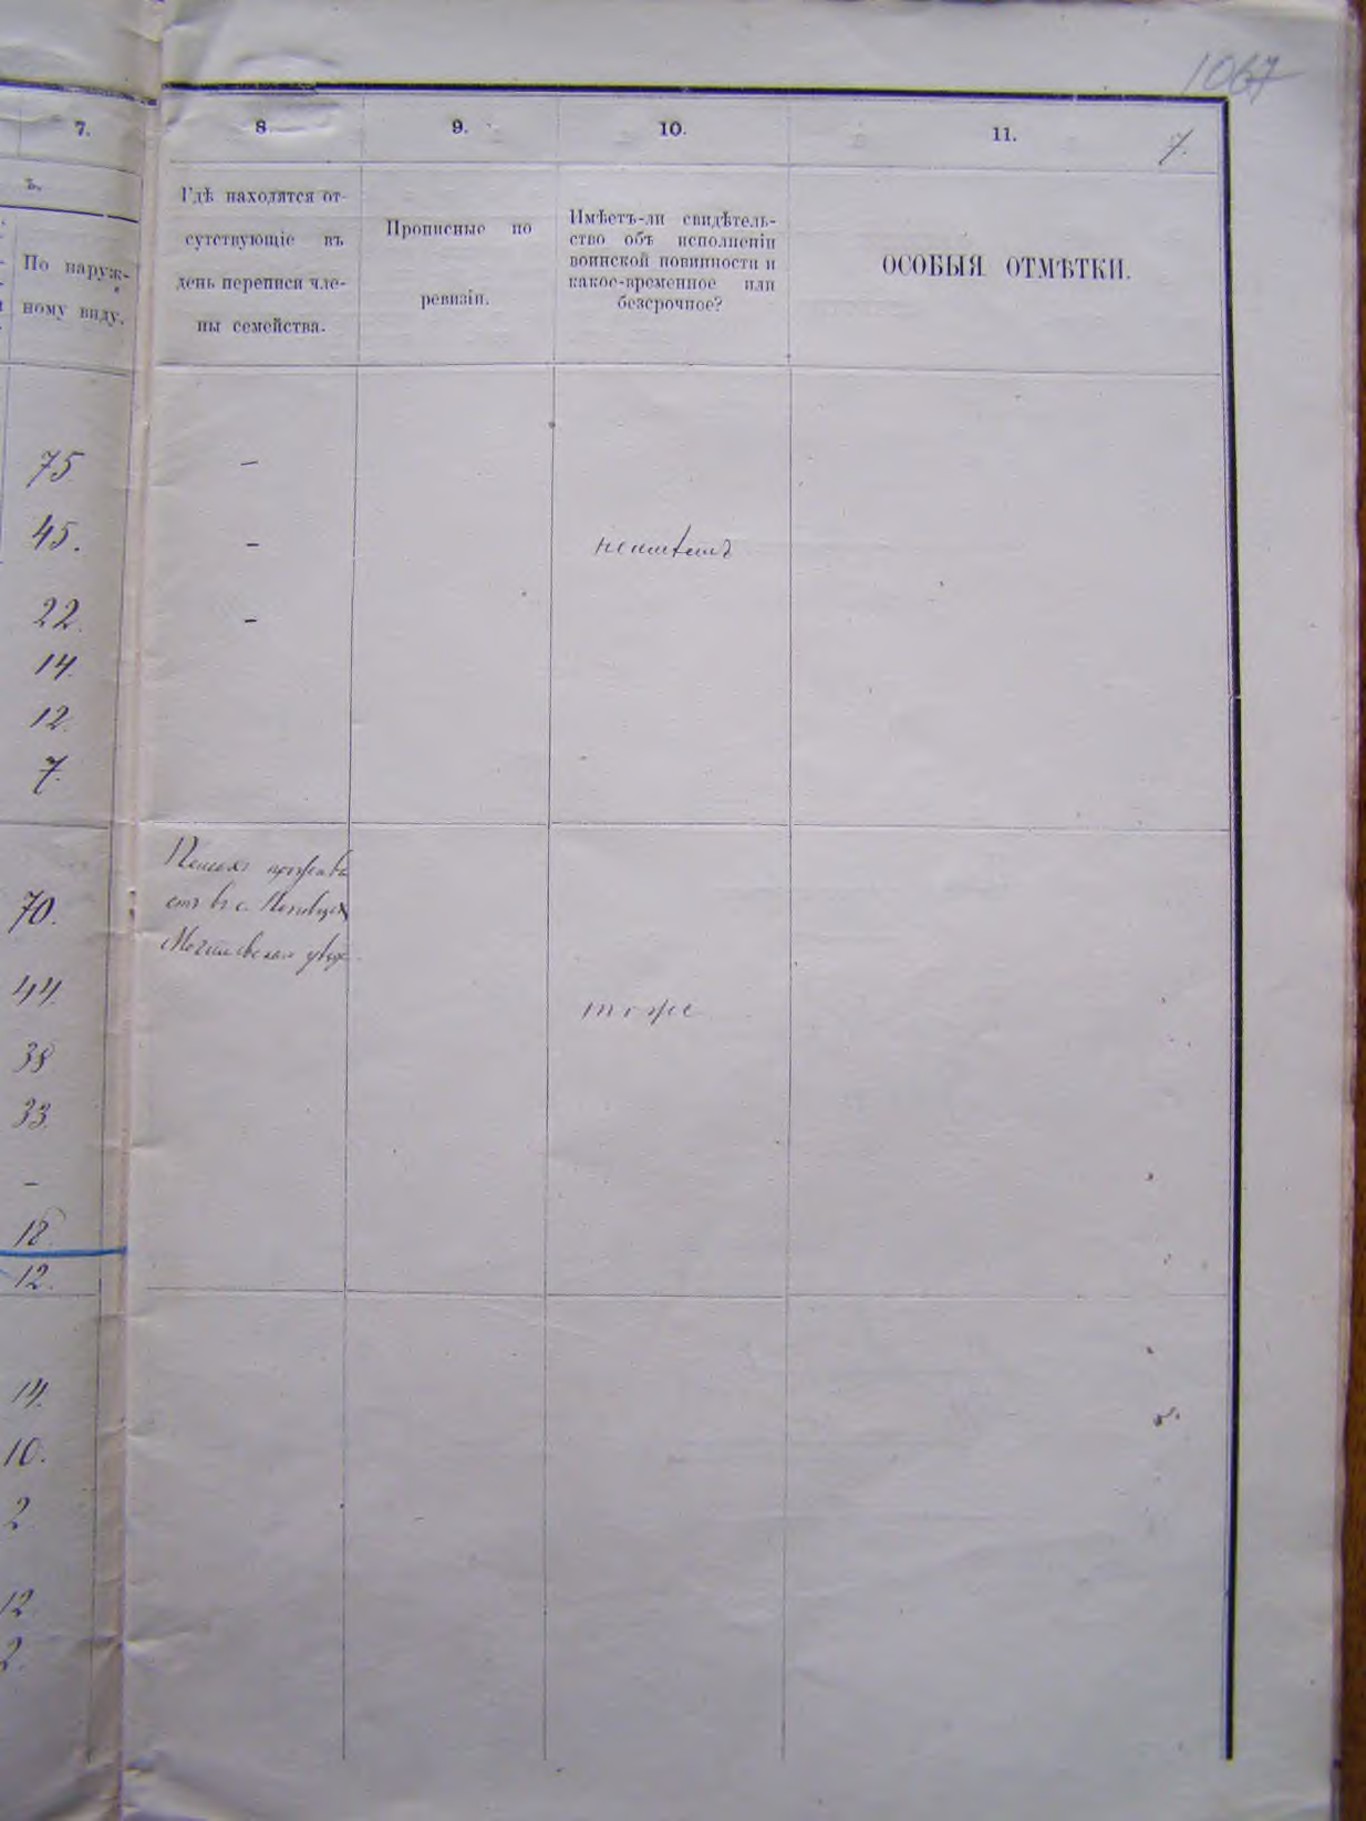 1067
7. 8 9. 10. 11. 7.
ъ.
По наруж-
ному виду.
Гдѣ находятся от-
сутствующіе въ
день переписи чле-
ны семейства.
Прописные по
ревизіи.
Имѣетъ-ли свидѣтель-
ство объ исполненіи
воинской повинности и
какое-временное или
безсрочное?
ОСОБЫЯ ОТМѢТКИ.
75 —
45. — неимѣетъ
22. —
14.
12.
7.
Пейсахъ прожива
етъ въ с.
70.
Могилевскаго уѣзд
44. тоже
38
33.
—
18.
12.
14.
10.
2
12
2.